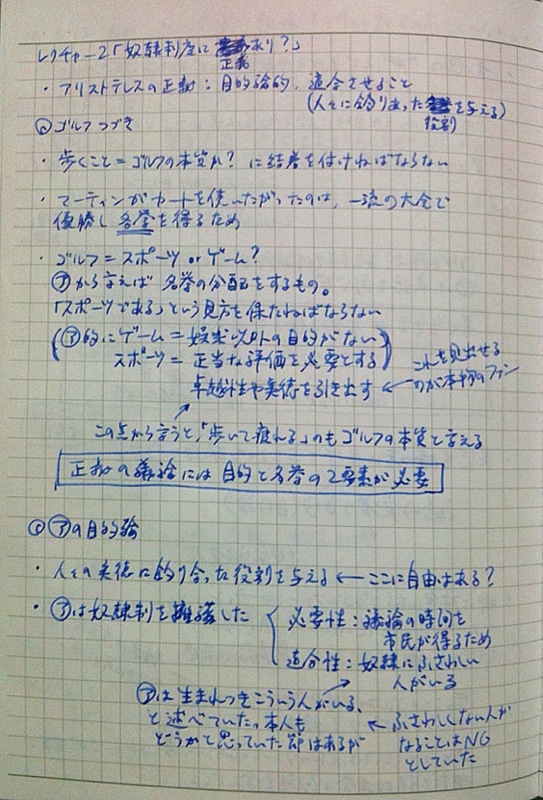 レクチャー2「奴隷制度に正義あり?」
・アリストテレスの正義:目的論的、適合させること
(人々に釣りあった役割を与える)
◎ゴルフつづき
・歩くこと=ゴルフの本質か? に結着を付けねばならない
・マーティンがカートを使いたがったのは、一流の大会で
優勝し名誉を得るため
・ゴルフ=スポーツ or ゲーム?
㋐から言えば 名誉の分配をするもの。
「スポーツである」という見方を保たねばならない
(㋐的にゲーム=娯楽以外の目的がない
スポーツ=正当な評価を必要とする)
卓越性や美徳を引き出す ← これを見出せる
のが本物のファン
この点から言うと、「歩いて疲れる」のもゴルフの本質と言える
正義の議論には目的と名誉の2要素が必要
◎㋐の目的論
・人々の美徳に釣り合った役割を与える ← ここに自由はある?
・㋐は奴隷制を擁護した
必要性:議論の時間を
市民が得るため
適合性:奴隷にふさわしい
人がいる
㋐は生まれつきこういう人がいる、
と述べていた。本人も
どうかと思っていた節はあるが
← ふさわしくない人が
なることはNG
としていた